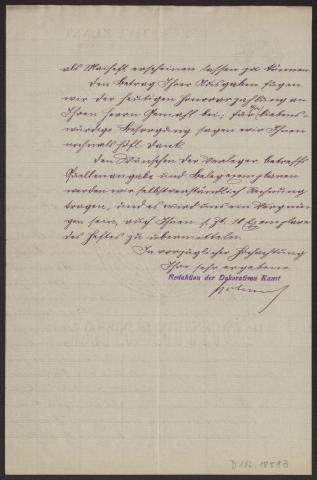 als Maiheft erscheinen lassen zu können.
Den Betrag Ihrer Ausgaben fügen
wir der heutigen Honorarzahlung an
Ihren Herrn Gemahl bei; für die liebens-
würdige Besorgung sagen wir Ihnen
nochmals höfl. Dank.
Den Wünschen der Verleger betreffs
Quellenangabe und Belegexemplaren
werden wir selbstverständlich Rechnung
tragen, und es wird uns ein Vergnü-
gen sein, auch Ihnen s. Zt. 10 Exemplare
des Heftes zu übermitteln.
In vorzüglicher Hochachtung
Ihre sehr ergebene
Redaktion der Dekorativen Kunst
D 112.1859 B